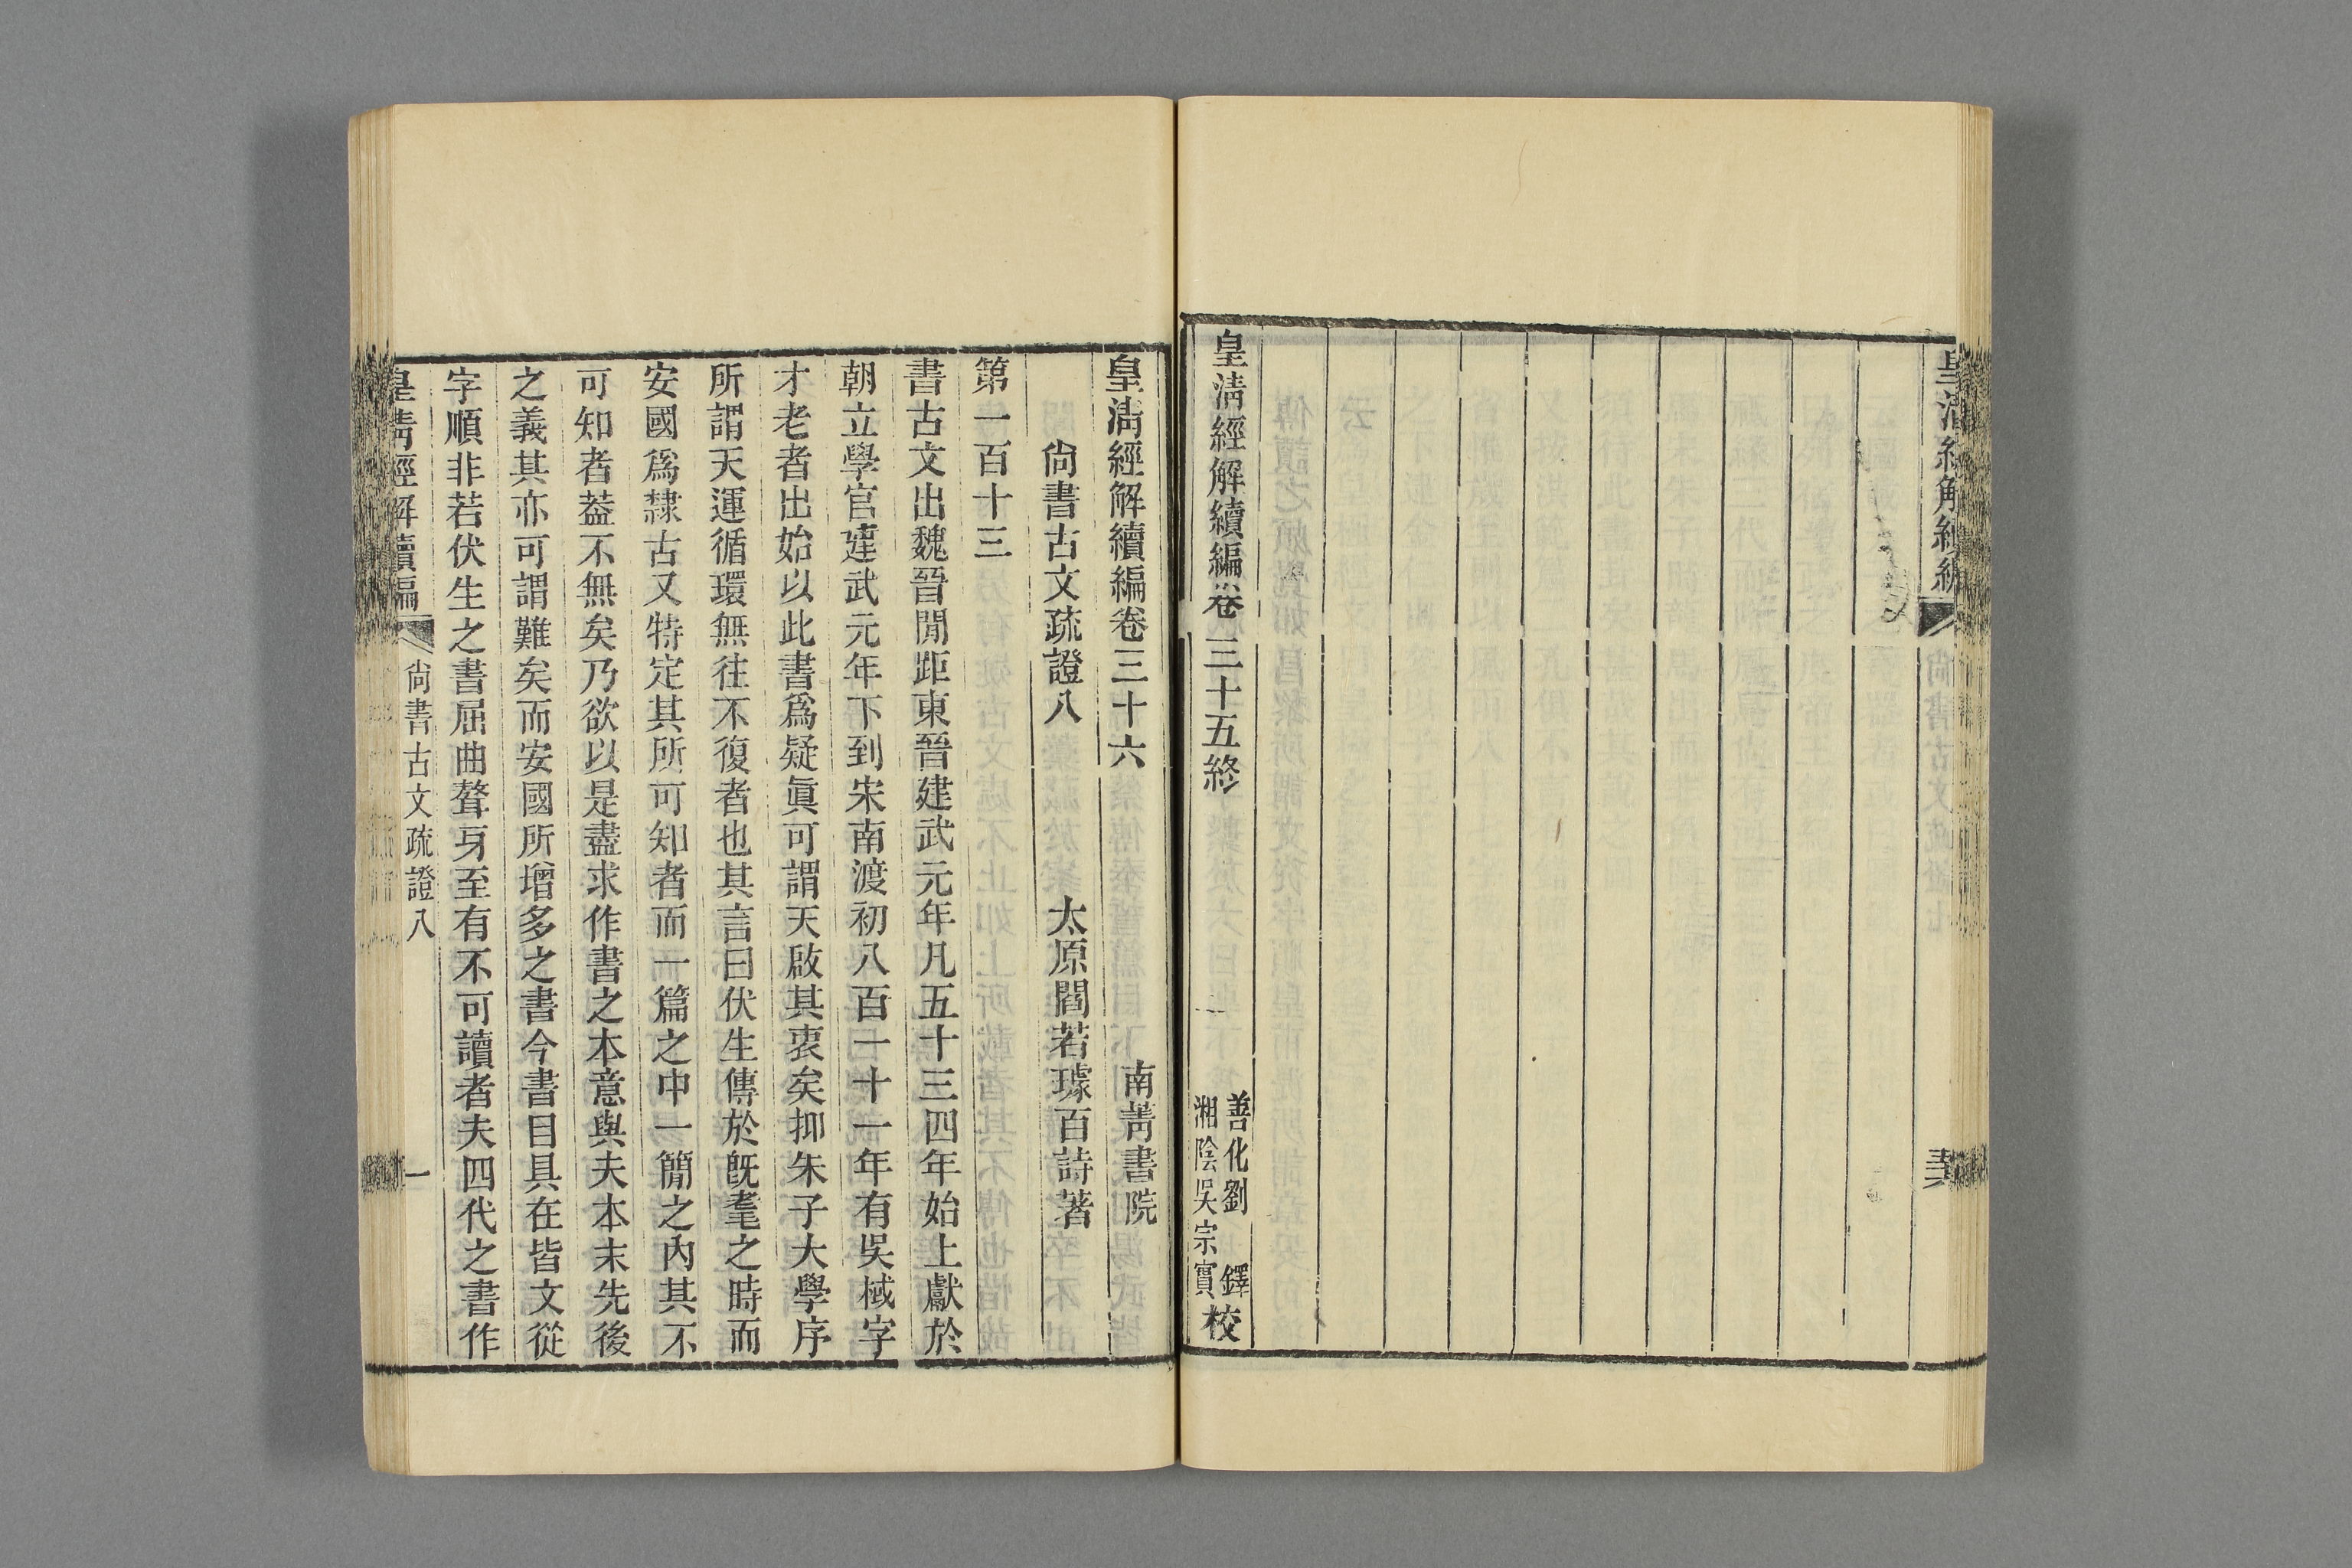 皇清經解續編
尚書古文疏證七
皇清經解續編卷三十五終
善化劉鐸
湘陰吳宗實
校
皇淸經解續編卷三十六
南菁書院
尙書古文疏證八
太原閻若璩百詩著
第一百十三
書古文出魏晉閒距東晉建武元年凡五十三四年始上獻於
朝立學官建武元年下到宋南渡初八百一十一年有吳棫字
才老者出始以此書爲疑眞可謂天啟其衷矣抑朱子大學序
所謂天運循環無往不復者也其言曰伏生傳於旣耄之時而
安國爲隸古又特定其所可知者而一篇之中一簡之內其不
可知者葢不無矣乃欲以是盡求作書之本意與夫本末先後
之義其亦可謂難矣而安國所增多之書今書目具在皆文從
字順非若伏生之書屈曲聱牙至有不可讀者夫四代之書作
皇淸經解續編
尙書古文疏證八
一